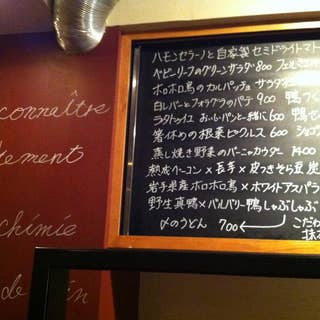 connaître
tement
chimie
de
ハモンセラーノと自家製セミドライトマト
ベビーリーフのグリーンサラダ 800 フェルミエ
ホロホロ鳥のカルパッチョ サラダ
白レバーとフォアグラのパテ 900 鴨
ラタトゥイユ おいしいパンと一緒に 600 鴨
箸休めの根菜ピクルス 600
蒸し焼き野菜のバーニャカウダー 1400
熟成ベーコン×長芋×皮つきそら豆 炭
岩手県産ホロホロ鳥×ホワイトアスパラ
野生真鴨×バルバリー鴨しゃぶしゃぶ
〆のうどん 700 ← こだわ
抹茶